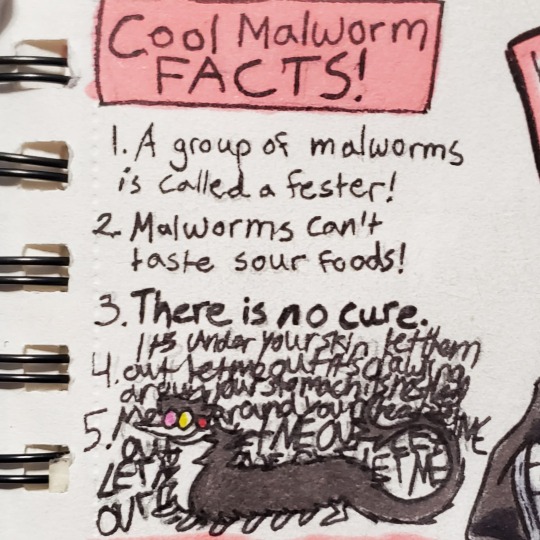 Cool Malworm
FACTS!
1. A group of malworms
is called a fester!
2. Malworms can't
taste sour foods!
3. There is no cure.
It's under your skin let them
4. out let me out it's clawing
around your stomach its nestled
5. around your
OUT
LET ME
LET
OUT